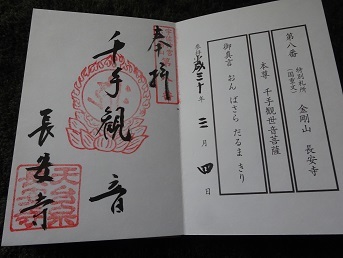 第八番 特別札所 (国重文) 金剛山 長安寺
本尊 千手観世音菩薩
御真言 おん ばさら だるま きり
奉拝 平成三十年 三月 四日
奉拝
千手観音
長安寺